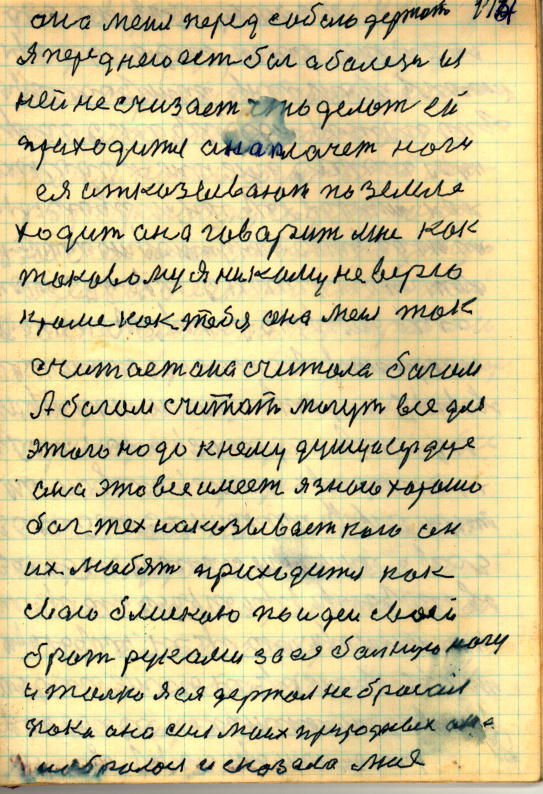 она меня перед собою держать
Я перед нею ест бол а болезн из
ней не счизает что делот ей
приходится она плачет ноги
ея отказывают по земле
ходит она говарит мне как
таковому я никаму не верю
кроме как тебя она меня так
считает ана считала богам
А богам считать могут все для
этого надо к нему душу и сердце
она это все имеет я знаю хорошо
бог тех наказывает кого он
их любят приходится как
свого близкаю по идеи своей
брат руками за ея больную ногу
и толко я ея держал не бросал
пока она сил моих природных
набралас и сказала мне